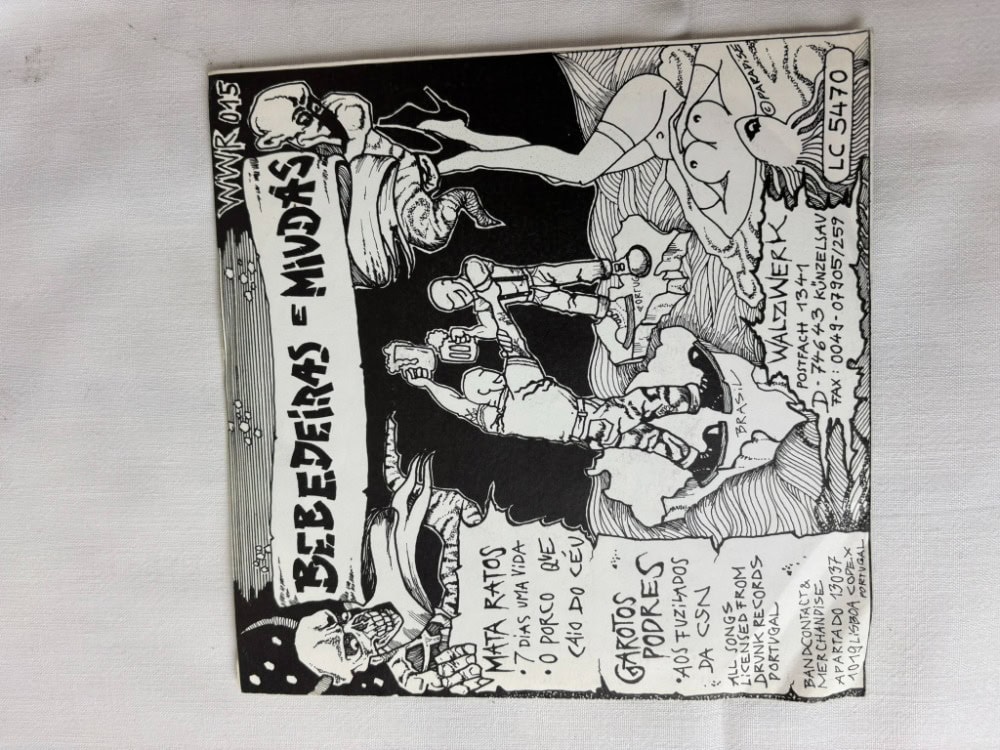 WWR 015
BEBEDEIRAS E MIUDAS
MATA RATOS
·7 DIAS UMA VIDA
·O PORCO QUE
CAIO DO CÉU
GAROTOS
PODRES
·AOS FUZILADOS
DA CSN
ALL SONGS
LICENSED FROM
DRUNK RECORDS
PORTUGAL
BANDCONTACT &
MERCHANDISE:
APARTADO 13037
1019 LISBOA CODEX
PORTUGAL
BRASIL
WALZWERK
POSTFACH 1341
D-74643 KÜNZELSAU
FAX: 0049-07905/259
©PARADISE
LC 5470